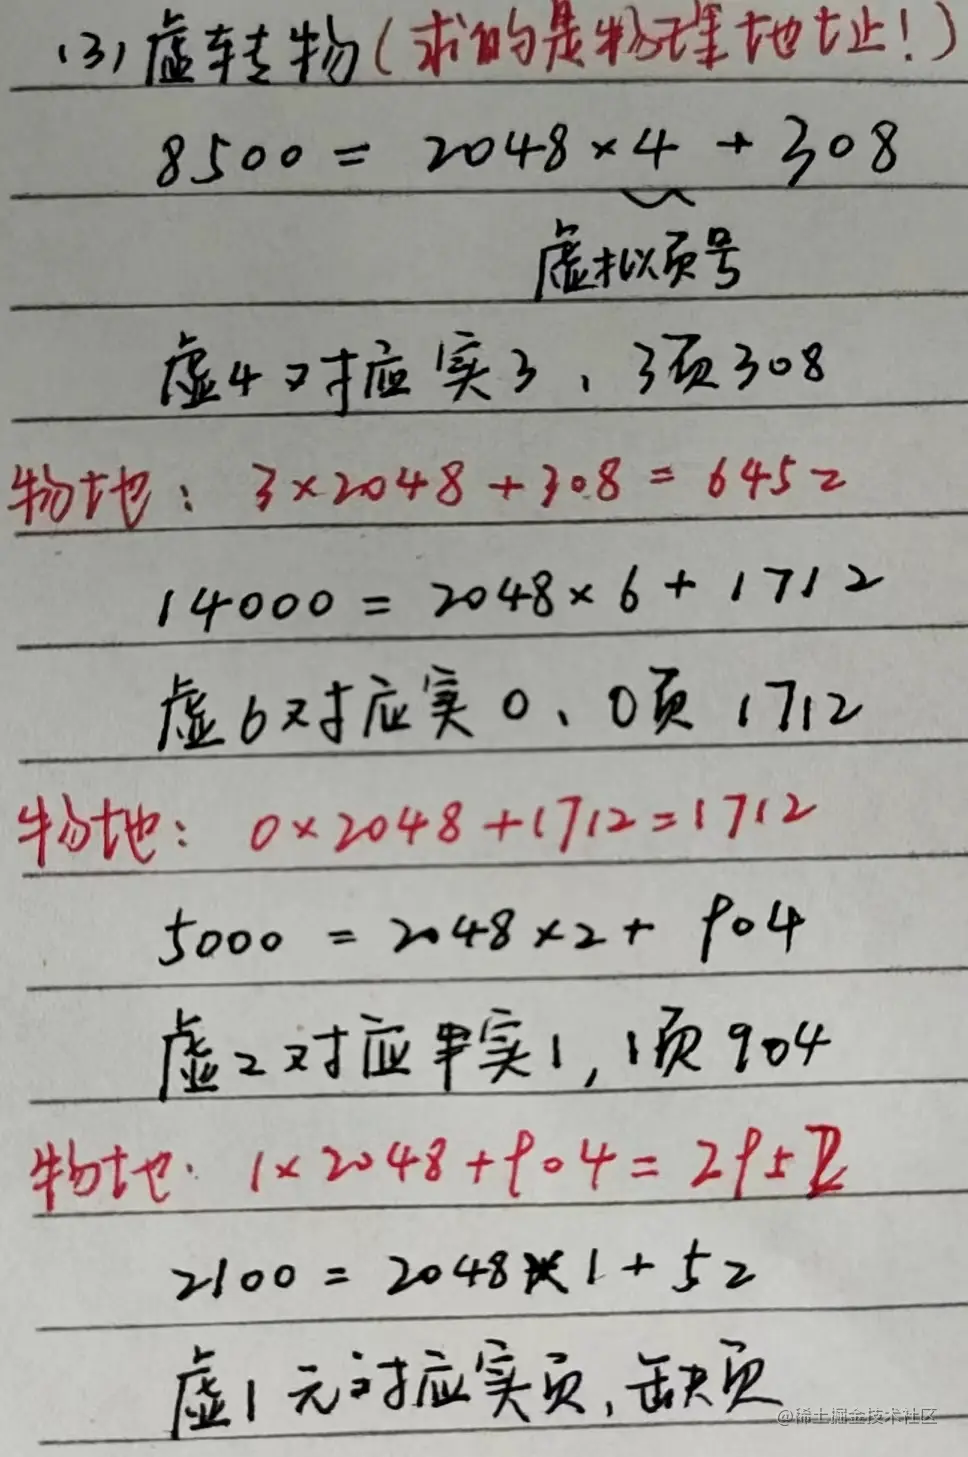 (3) 虚转物(求的是物理地址!)
8500 = 2048 × 4 + 308
虚拟页号
虚4对应实3、3页308
物地: 3×2048+308=6452
14000 = 2048 × 6 + 1712
虚6对应实0、0页1712
物地: 0×2048+1712=1712
5000 = 2048 × 2 + 904
虚2对应实1, 1页904
物地: 1×2048+904=2952
2100 = 2048 × 1 + 52
虚1无对应实页, 缺页
@稀土掘金技术社区